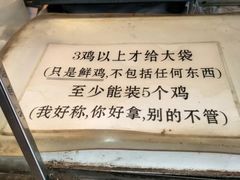 3鸡以上才给大袋
(只是鲜鸡,不包括任何东西)
至少能装5个鸡
(我好称,你好拿,别的不管)